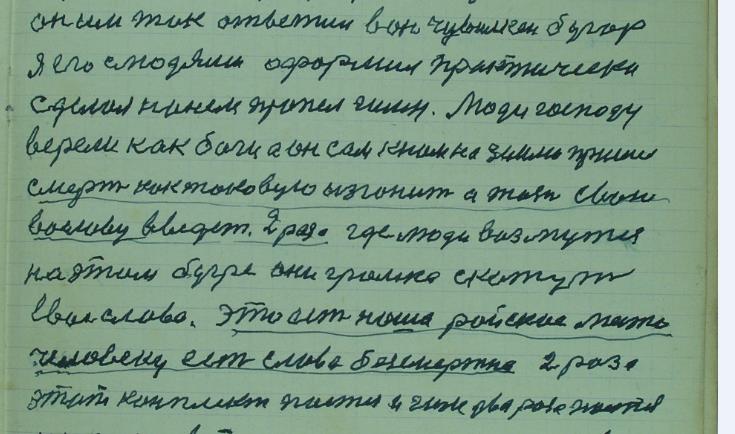 он им так ответил вон чувилкен бугор
я его с людями оформил практически
сделал на нем пропел гимн. Люди господу
верели как богу а он сам к нам на землю пришел
смерт как таковую изгонит а жизн свою
вославу введет. 2 раза где люди возмутся
на этом бугре они громко скажут
свои слова. это ест наша райское место
человеку ест слава безсмертна 2 раза
этот комплект и гимн два раза поется